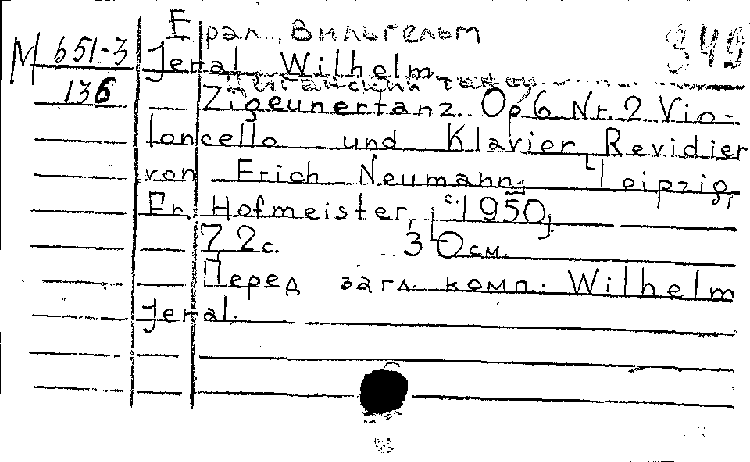 Ерал. Вильгельм
М 651-3 Jeral, Wilhelm.
136 Цыганский танец
Zigeunertanz. Op 6 Nr. 2 Vio-
loncello und Klavier, Revidier
von Erich Neumann, Leipzig,
Fr. Hofmeister, [с. 1950]
72 с. 30 см.
Перед загл. комп. Wilhelm
Jeral.